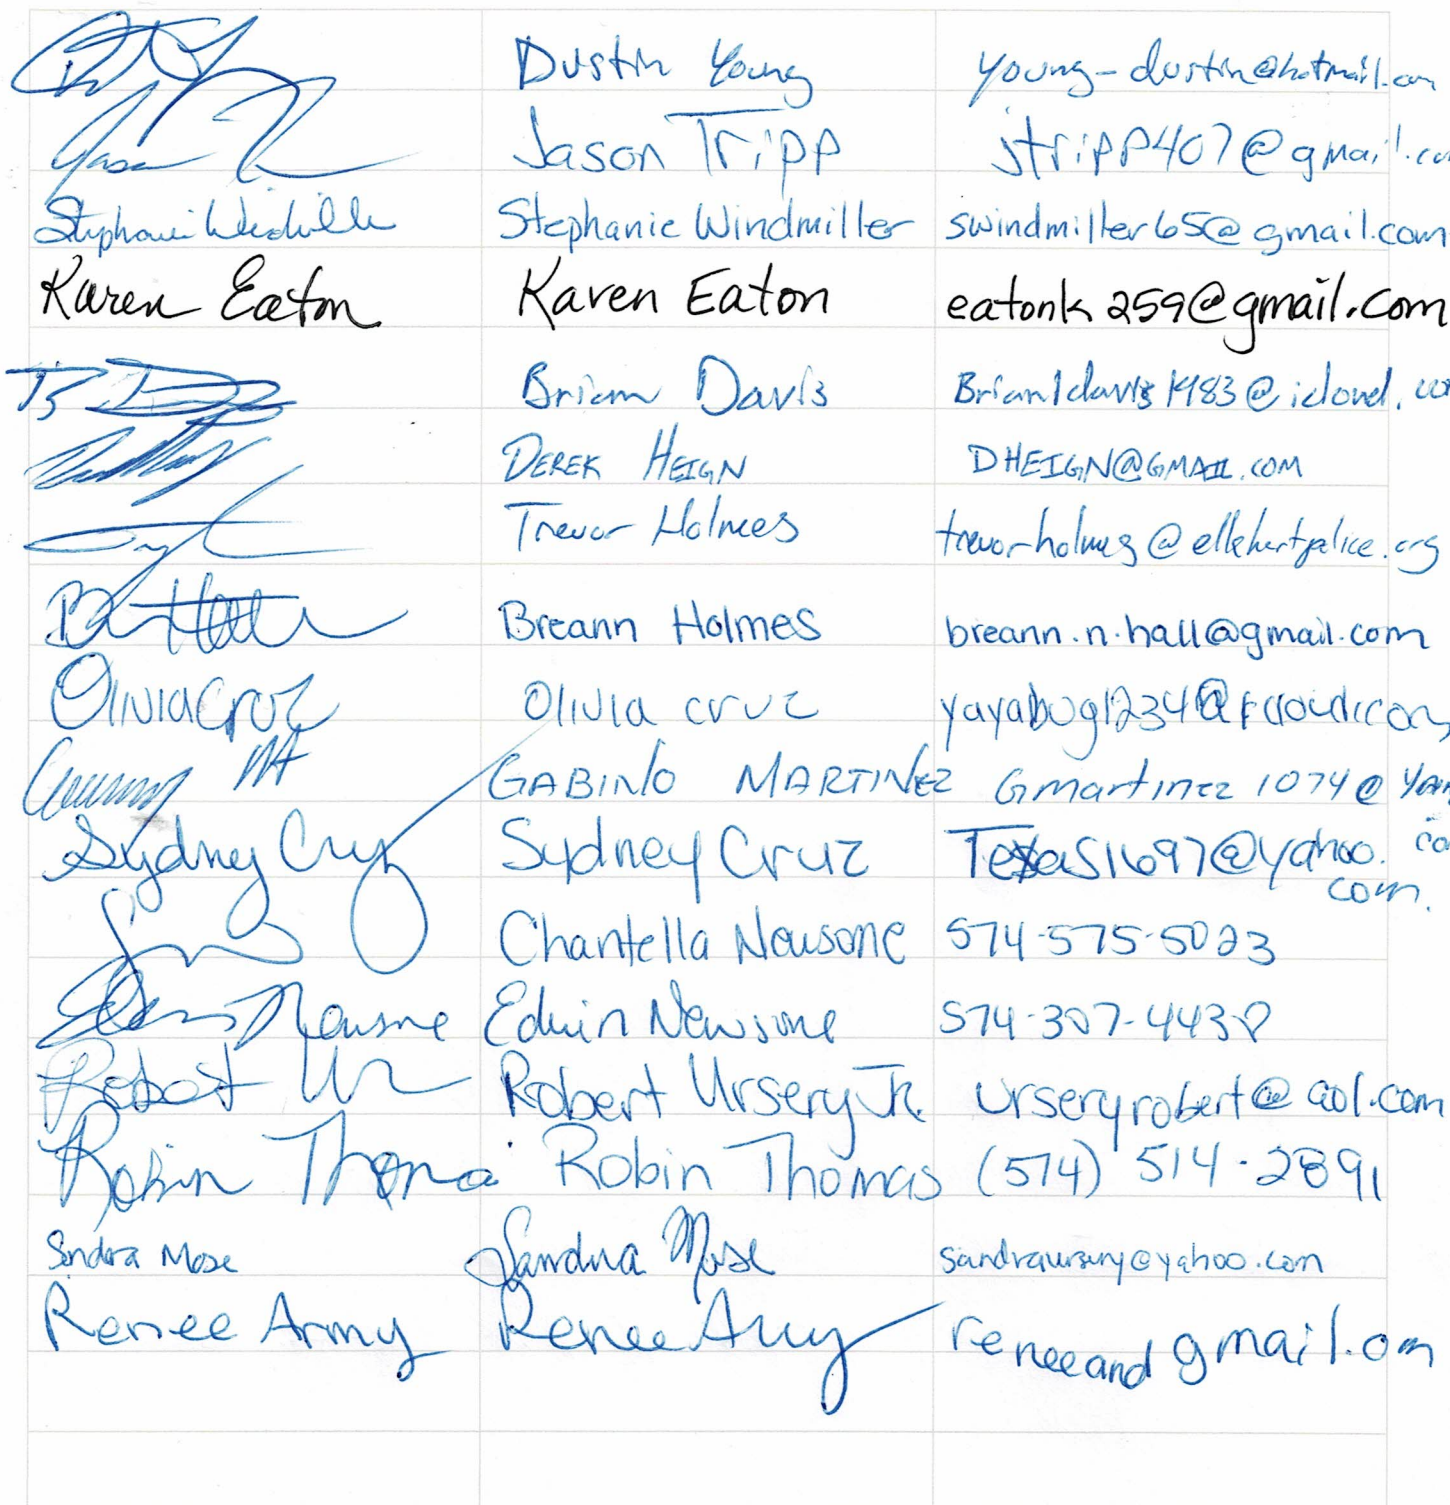 Dustin Young young-dustin@hotmail.com
Jason Jason Tripp jtripp407@gmail.com
Stephanie Windmiller Stephanie Windmiller swindmiller65@gmail.com
Karen Eaton Karen Eaton eatonk259@gmail.com
Brian Davis Brian1davis1983@icloud.com
DEREK HEIGN DHEIGN@GMAIL.COM
Trevor Holmes trevor.holmes@elkhartpolice.org
Breann Holmes breann.n.hall@gmail.com
Olivia Cruz Olivia cruz yayabug1234@icloud.com
GABINO MARTINEZ Gmartinez1074@
Sydney Cruz Sydney Cruz Texas1697@yahoo.
com.
Chantella Newsome 574-575-5023
Newsome Edwin Newsome 574-307-4438
Robert Robert Ursery Jr. urseryrobert@aol.com
Robin Thomas Robin Thomas (574) 514-2891
Sandra Mose Sandra Mose sandraursery@yahoo.com
Renee Army Renee Army reneeand gmail.om